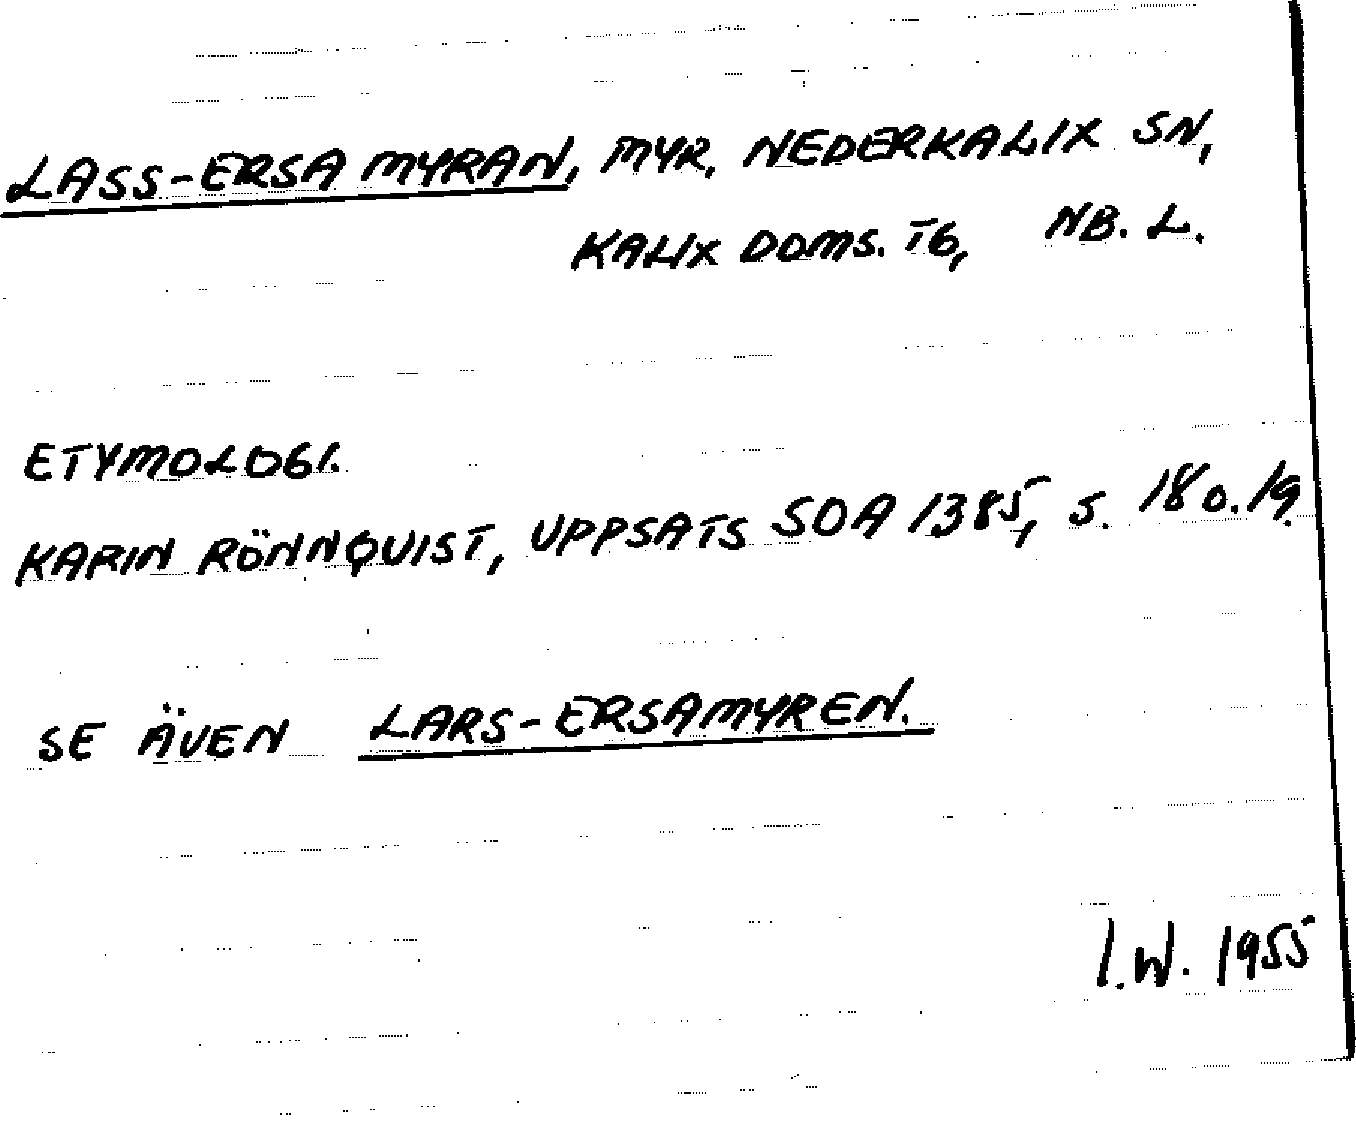 LASS-ERSA MYRAN, MYR, NEDERKALIX SN,
KALIX DOMS. TG, NB. L.
ETYMOLOGI.
KARIN RÖNNQUIST, UPPSATS SOA 1385, S. 18 O. 19.
SE ÄVEN LARS-ERSAMYREN.
I.W. 1955